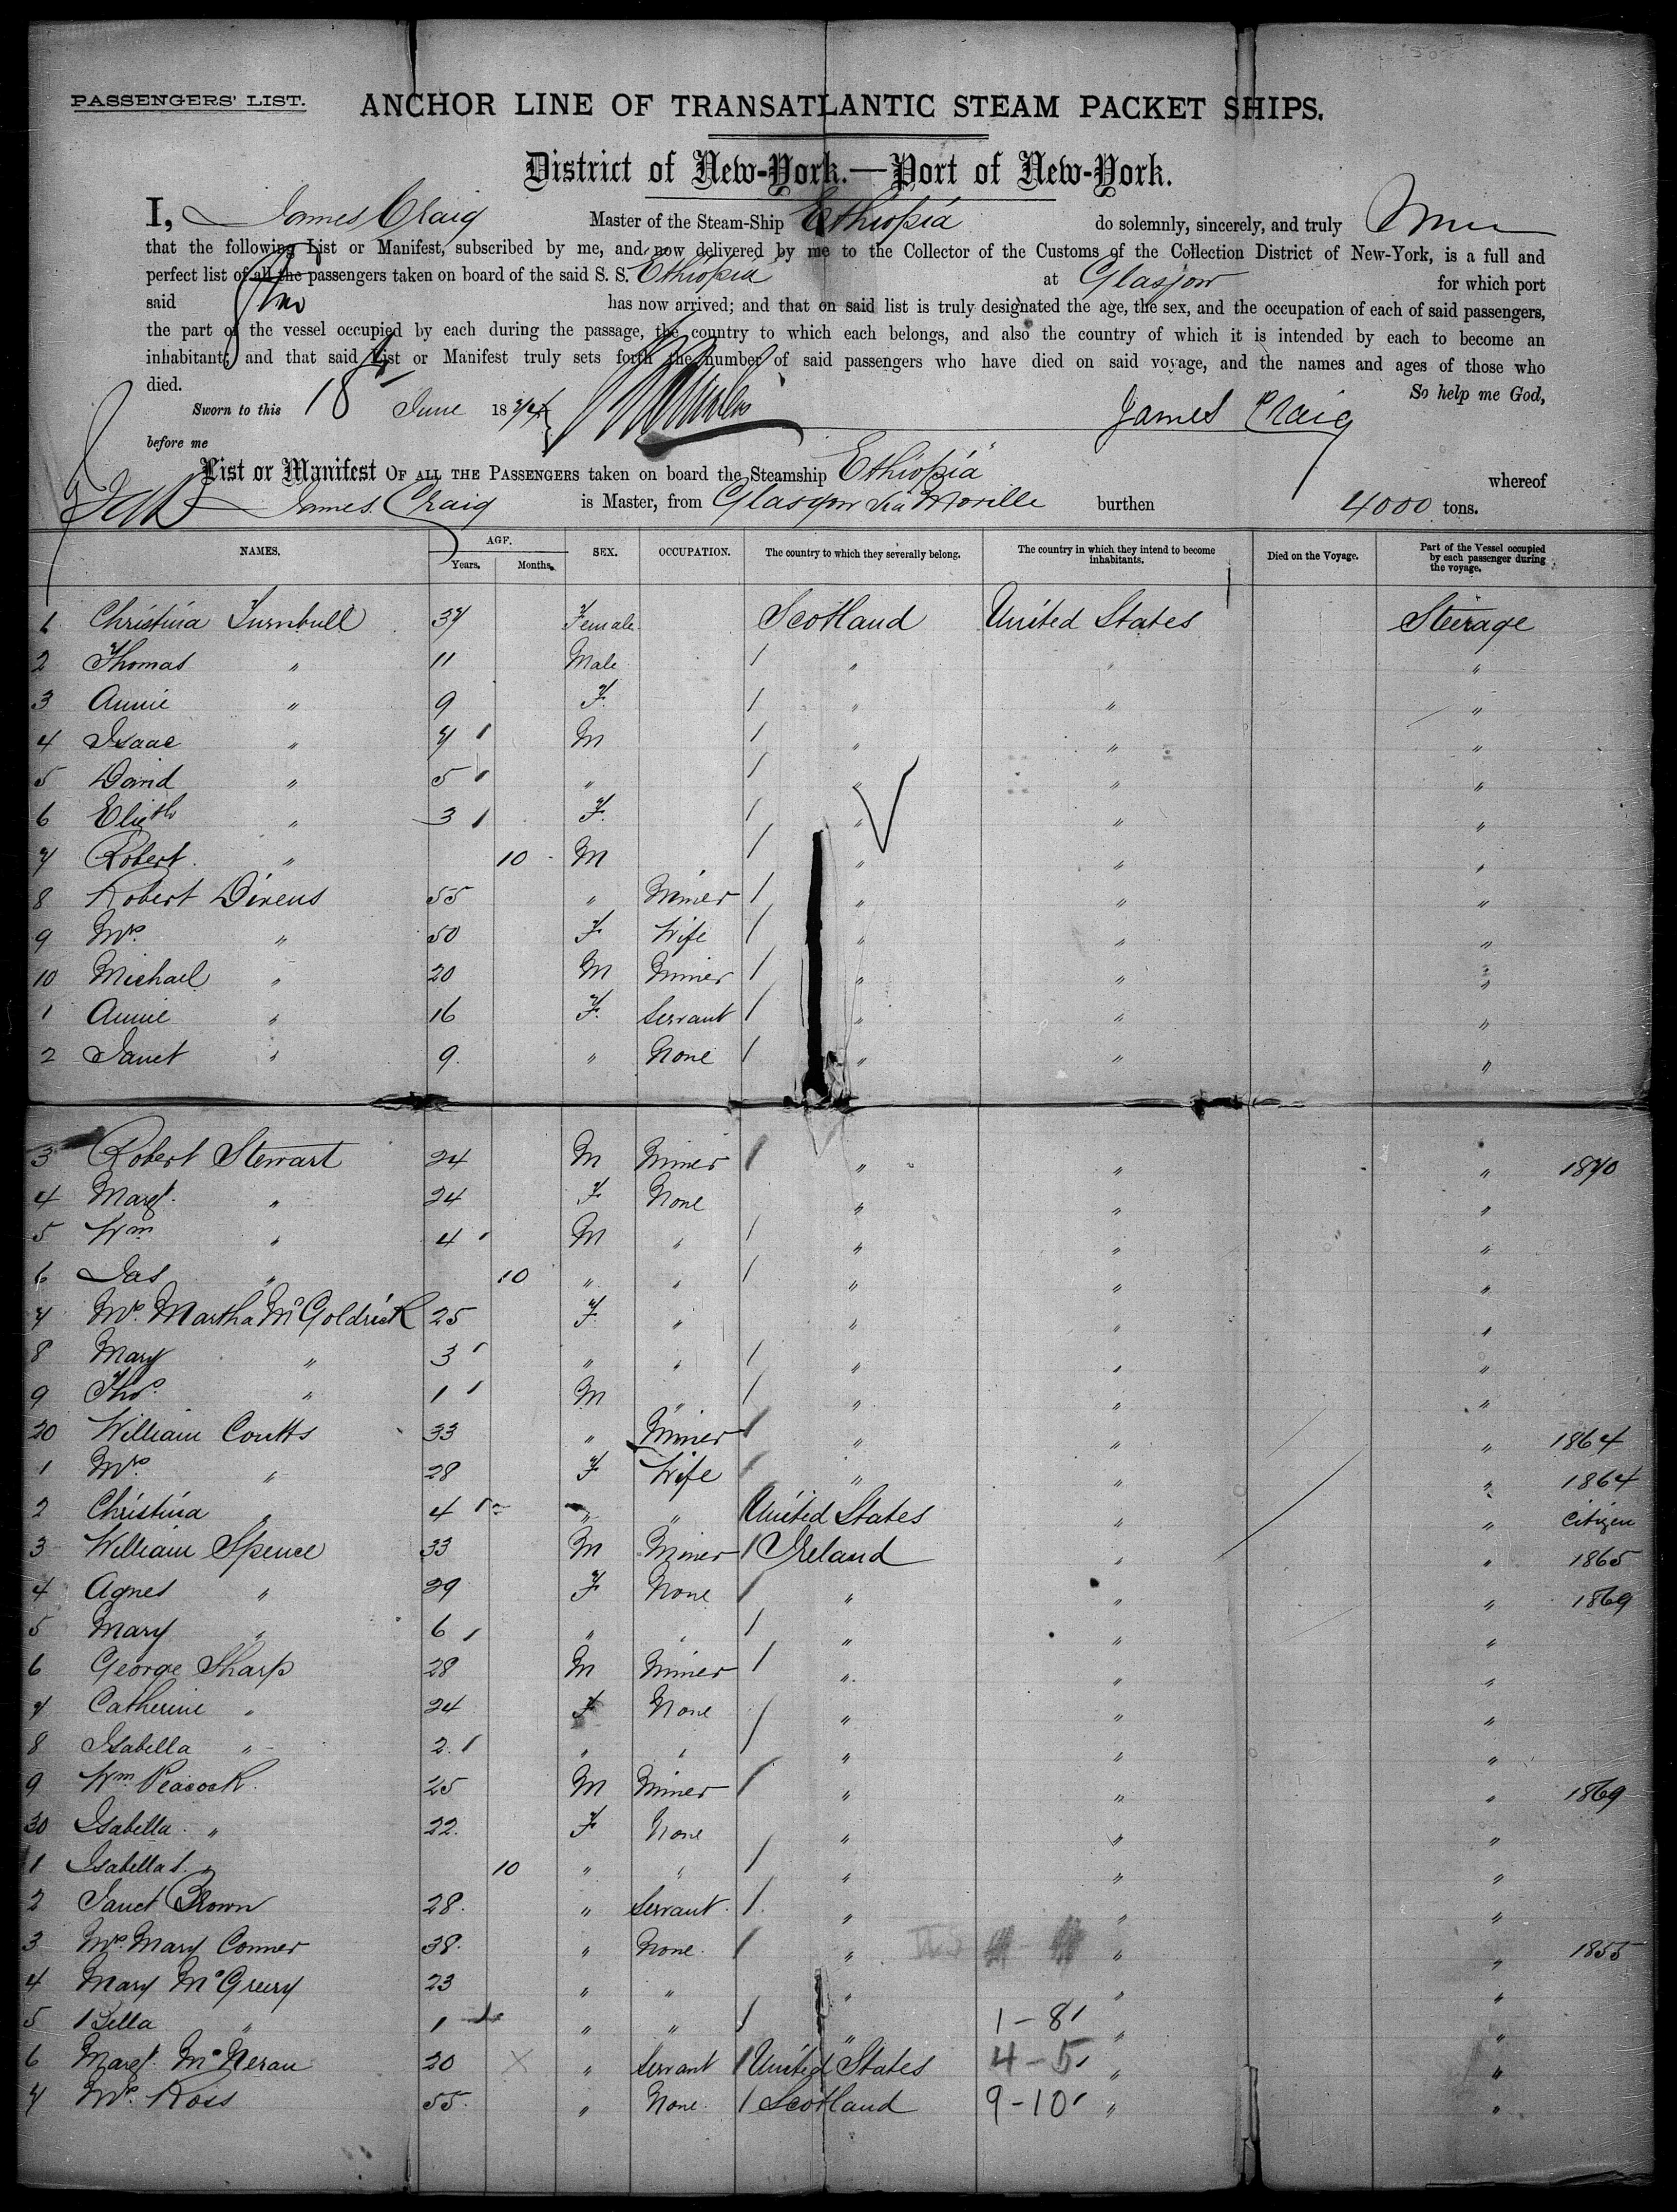 PASSENGERS' LIST.
ANCHOR LINE OF TRANSATLANTIC STEAM PACKET SHIPS.
District of New-York.—Port of New-York.
I, James Craig Master of the Steam-Ship Ethiopia do solemnly, sincerely, and truly
that the following List or Manifest, subscribed by me, and now delivered by me to the Collector of the Customs of the Collection District of New-York, is a full and
perfect list of all the passengers taken on board of the said S. S. Ethiopia at Glasgow for which port
said has now arrived; and that on said list is truly designated the age, the sex, and the occupation of each of said passengers,
the part of the vessel occupied by each during the passage, the country to which each belongs, and also the country of which it is intended by each to become an
inhabitant; and that said List or Manifest truly sets forth the number of said passengers who have died on said voyage, and the names and ages of those who
died. So help me God,
Sworn to this 18 June 1874 James Craig
before me
List or Manifest OF ALL THE PASSENGERS taken on board the Steamship Ethiopia whereof
James Craig is Master, from Glasgow via Moville burthen 4000 tons.
NAMES. AGE. Years. Months. SEX. OCCUPATION. The country to which they severally belong. The country in which they intend to become inhabitants. Died on the Voyage. Part of the Vessel occupied by each passenger during the voyage.
1 Christina Turnbull 37 Female Scotland United States Steerage
2 Thomas " 11 Male " " "
3 Annie " 9 F. " " "
4 Isaac " 7 M " " "
5 David " 5 " " " "
6 Elizth " 3 F. " " "
7 Robert. " 10 M " " "
8 Robert Divens 55 " Miner " " "
9 Mrs. " 50 F Wife " " "
10 Michael " 20 M Miner " " "
1 Annie " 16 F. Servant " " "
2 Janet " 9. " None " " "
3 Robert Stewart 24 M Miner " " " 1870
4 Margt. " 24 F None " " "
5 Wm " 4 M " " " "
6 Jas " 10 " " " " "
7 Mrs. Martha McGoldrick 25 F " " " "
8 Mary " 3 " " " " "
9 Thos. " 1 M " " " "
20 William Coutts 33 " Miner " " " 1864
1 Mrs. " 28 F Wife " " " 1864
2 Christina " 4 " " United States " " Citizen
3 William Spence 33 M Miner Ireland " " 1865
4 Agnes " 29 F None " " " 1869
5 Mary " 6 " " " " "
6 George Sharp 28 M Miner " " "
7 Catherine " 24 F None " " "
8 Isabella " 2. " " " " "
9 Wm. Peacock. 25 M Miner " " " 1869
30 Isabella. " 22. F None " " "
1 Isabella S. " 10 " " " " "
2 Janet Brown 28. " Servant. " " "
3 Mrs. Mary Conner 38. " None. " " " 1855
4 Mary McGreery 23 " " " " "
5 Bella " 1 " " " 1-8 " "
6 Margt. McNeran 20 " Servant United States 4-5 " "
7 Mrs. Ross 55. " None. Scotland 9-10 " "